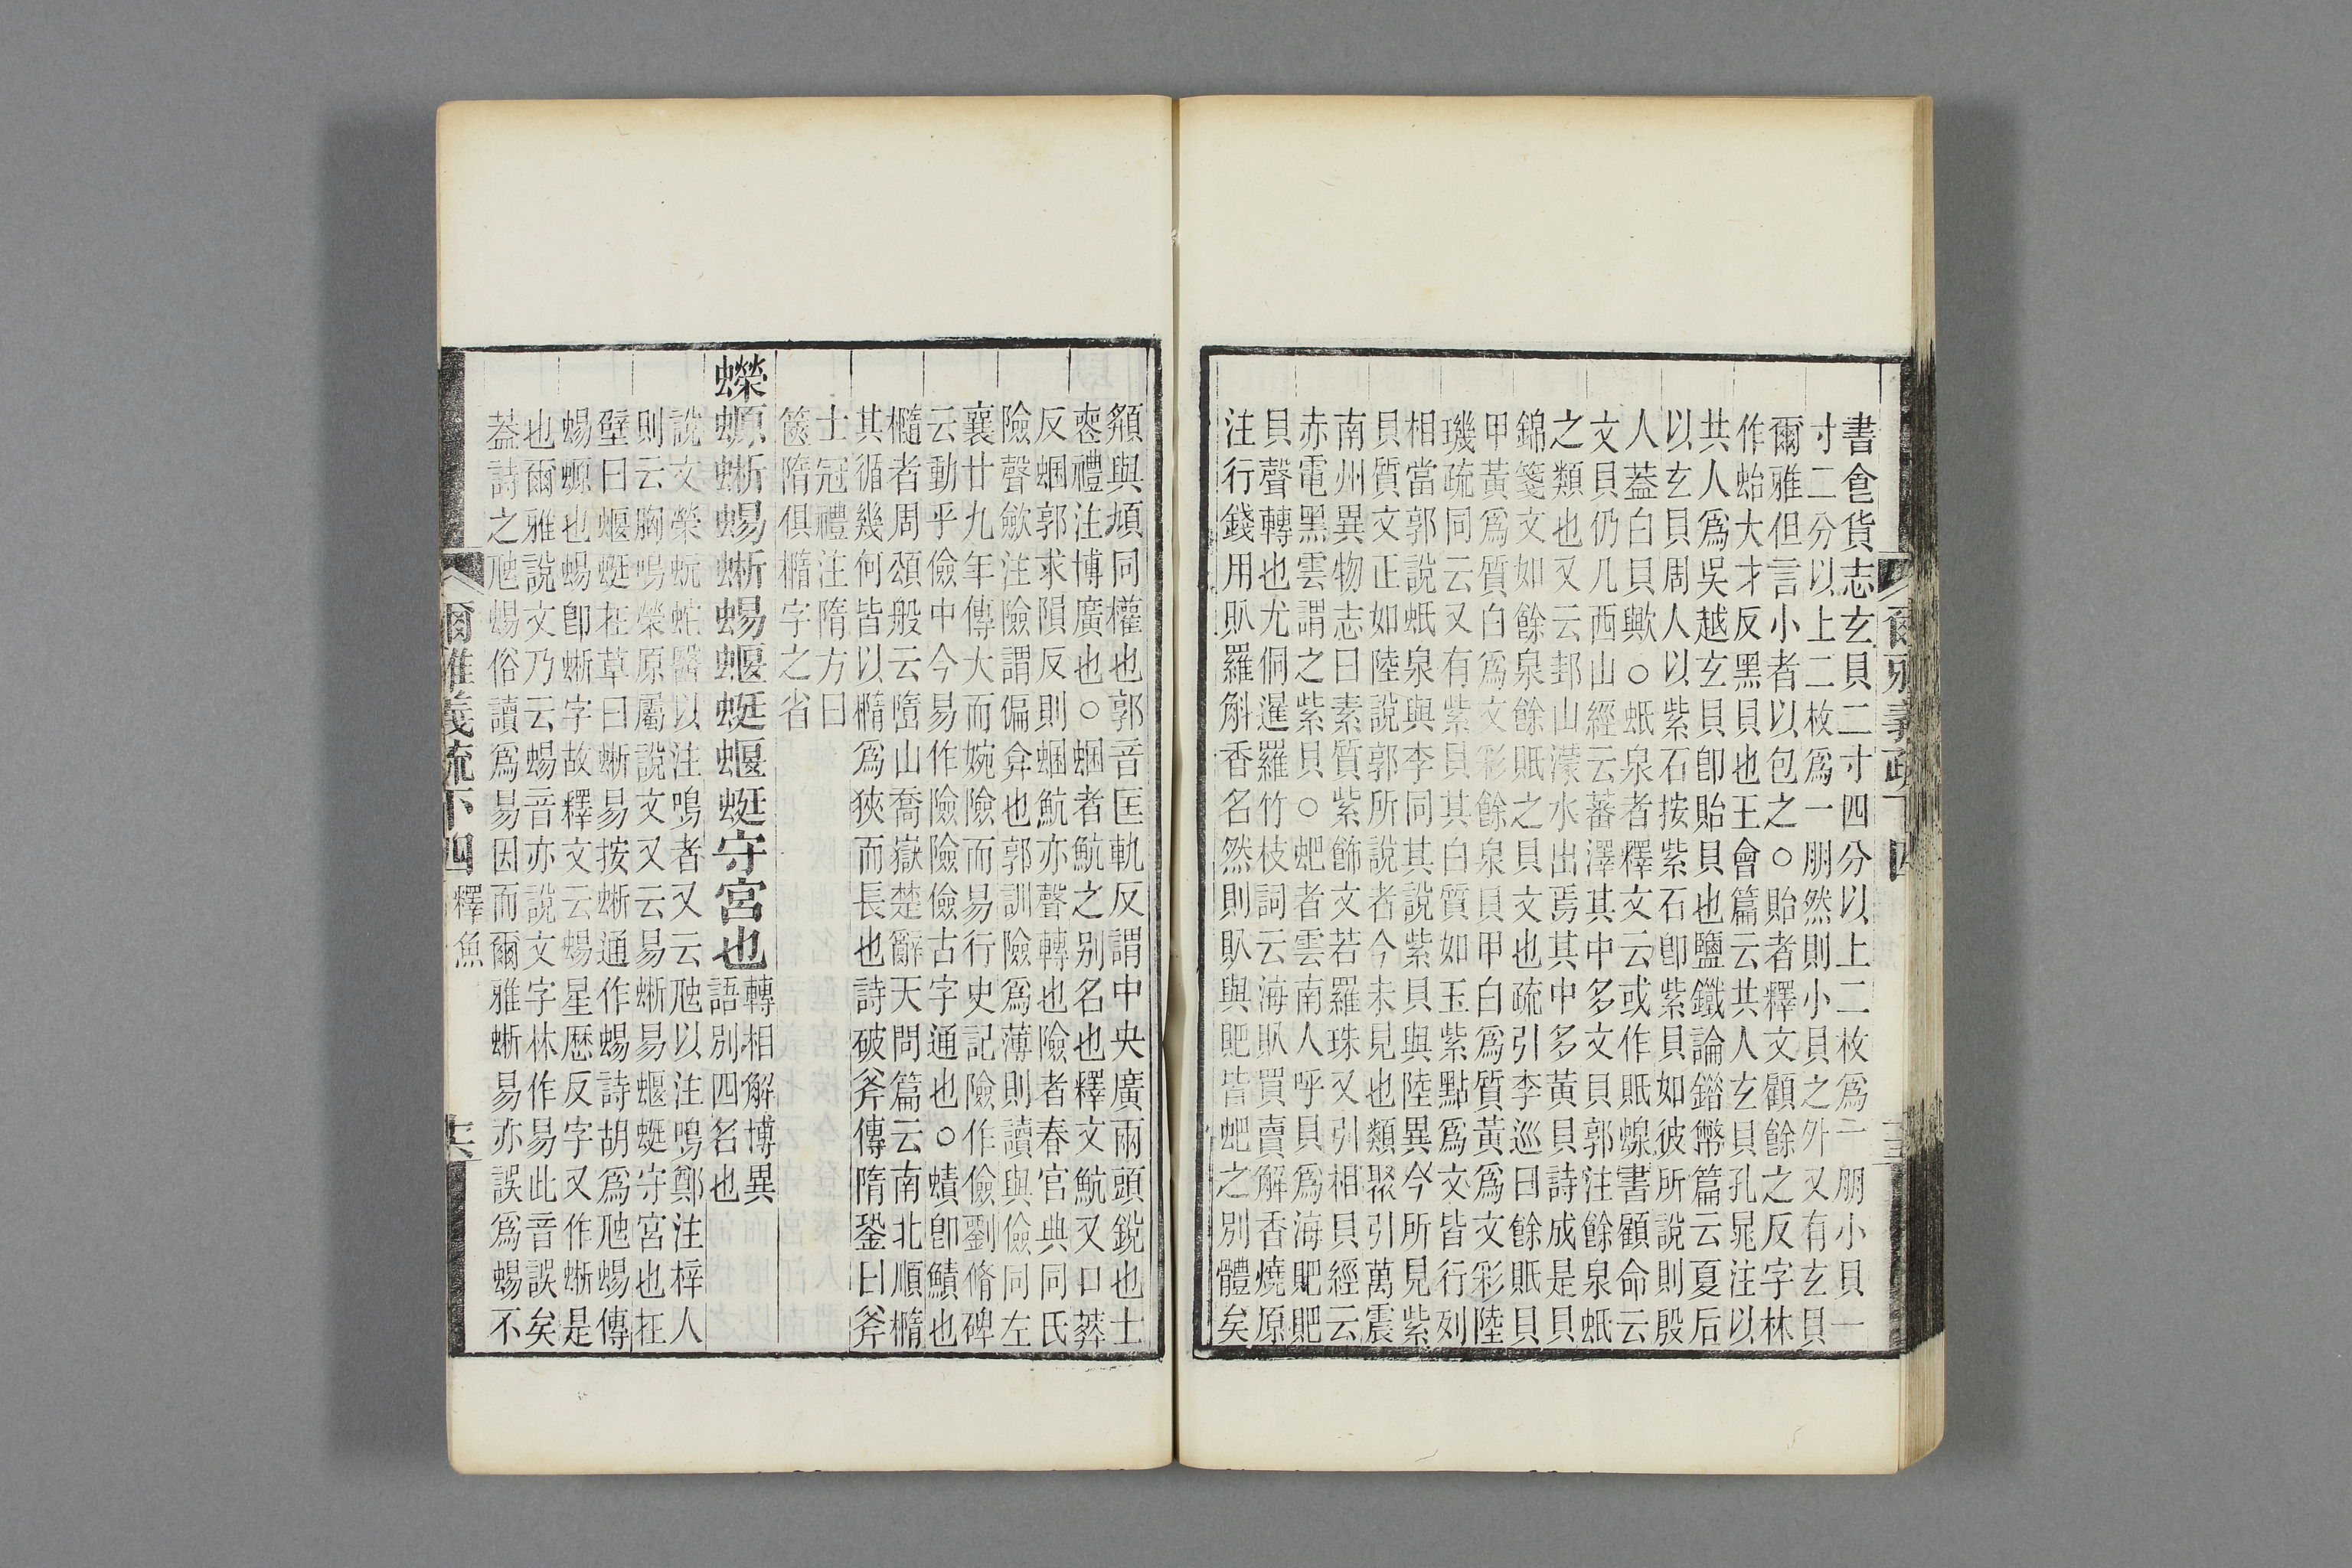 書食貨志玄貝二寸四分以上二枚爲一朋小貝一
寸二分以上二枚爲一朋然則小貝之外又有玄貝
爾雅但言小者以包之○貽者釋文顧餘之反字林
作蛤大才反黑貝也王會篇云共人玄貝孔晁注以
共人爲吳越玄貝卽貽貝也鹽鐵論錯幣篇云夏后
以玄貝周人以紫石按紫石卽紫貝如彼所說則殷
人葢白貝歟○蚳泉者釋文云或作貾蝝書顧命云
文貝仍几西山經云蕃澤其中多文貝郭注餘泉蚳
之類也又云邽山濛水出焉其中多黃貝詩成是貝
錦箋文如餘泉餘貾之貝文也疏引李巡曰餘貾貝
甲黃爲質白爲文彩餘泉貝甲白爲質黃爲文彩陸
璣疏同云又有紫貝其白質如玉紫點爲文皆行列
相當郭說蚳泉與李同其說紫貝與陸異今所見紫
貝質文正如陸說郭所說者今未見也類聚引萬震
南州異物志曰素質紫飾文若羅珠又引相貝經云
赤電黑雲謂之紫貝○蚆者雲南人呼貝爲海𧵅𧵅
貝聲轉也尤侗暹羅竹枝詞云海𧴤買賣解香燒原
注行錢用𧴤羅斛香名然則𧴤與𧵅皆蚆之別體矣
爾雅義疏下四
頯與頄同權也郭音匡軌反謂中央廣兩頭銳也士
喪禮注博廣也○蜠者魧之别名也釋文魧又口葬
反蜠郭求隕反則蜠魧亦聲轉也險者春官典同氏
險聲斂注險謂偏弇也郭訓險爲薄則讀與儉同左
襄廿九年傳大而婉險而易行史記險作儉劉脩碑
云動乎儉中今易作險險儉古字通也○蟦卽鰿也
橢者周頌般云墮山喬嶽楚辭天問篇云南北順橢
其循幾何皆以橢爲狹而長也詩破斧傳隋銎曰斧
士冠禮注隋方曰
篋隋俱橢字之省
蠑螈蜥蜴蜥蜴蝘蜓蝘蜓守宮也轉相解博異
語别四名也
說文榮蚖蛇醫以注鳴者又云虺以注鳴鄭注梓人
則云胸鳴榮原屬說文又云易蜥易蝘蜓守宮也在
壁曰蝘蜓在草曰蜥易按蜥通作蜴詩胡爲虺蜴傳
蜴螈也蜴卽蜥字故釋文云蜴星歷反字又作蜥是
也爾雅說文乃云蜴音亦說文字林作易此音誤矣
葢詩之虺蜴俗讀爲易因而爾雅蜥易亦誤爲蜴不
爾雅義疏下四
釋魚